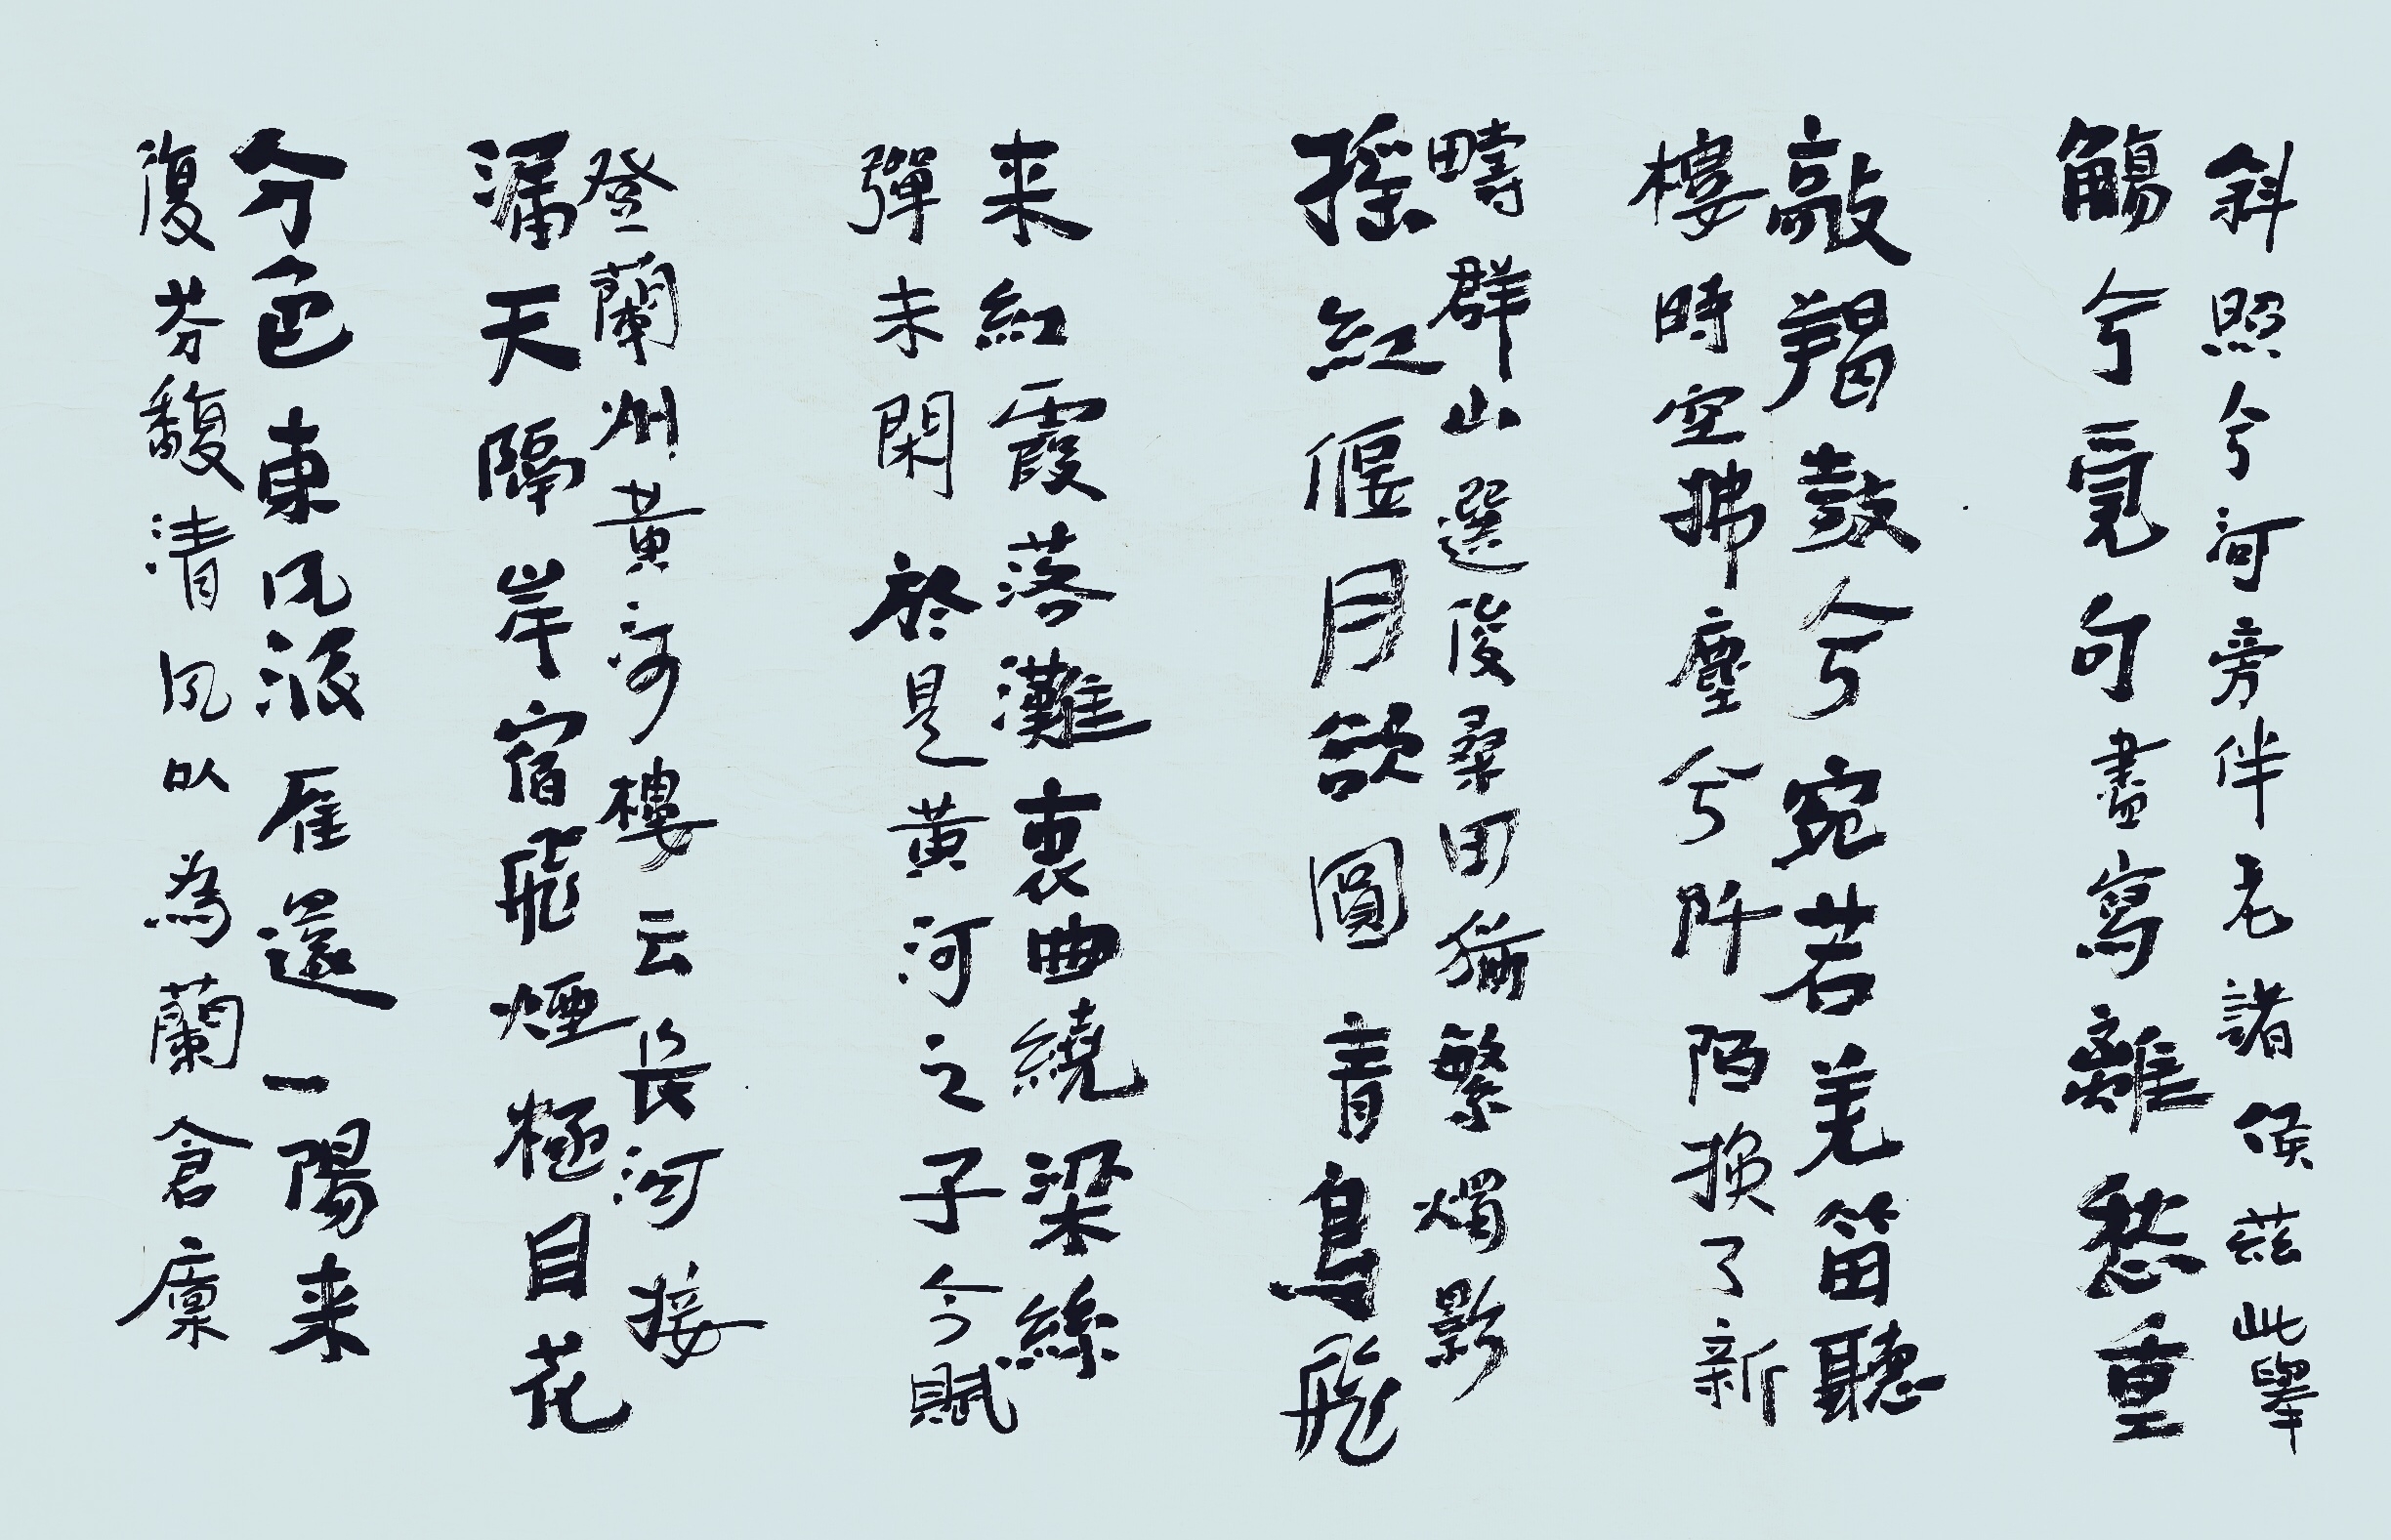 斜照兮河旁伴老諸侯茲此舉
觴兮毫句畫寫離愁重
敲羯鼓兮宛若羌笛聽
樓時空拂塵兮阡陌換了新
疇群山選後桑田猶繁燭影
搖紅偃月欲圓青鳥飛
来紅霞落灘裏曲繞梁絲
彈未閑於是黄河之子今賦
登蘭州黄河樓云長河接
漏天隔岸宿飛煙極目花
分色東风派雁還一陽来
復芬馥清风以為蘭倉廩